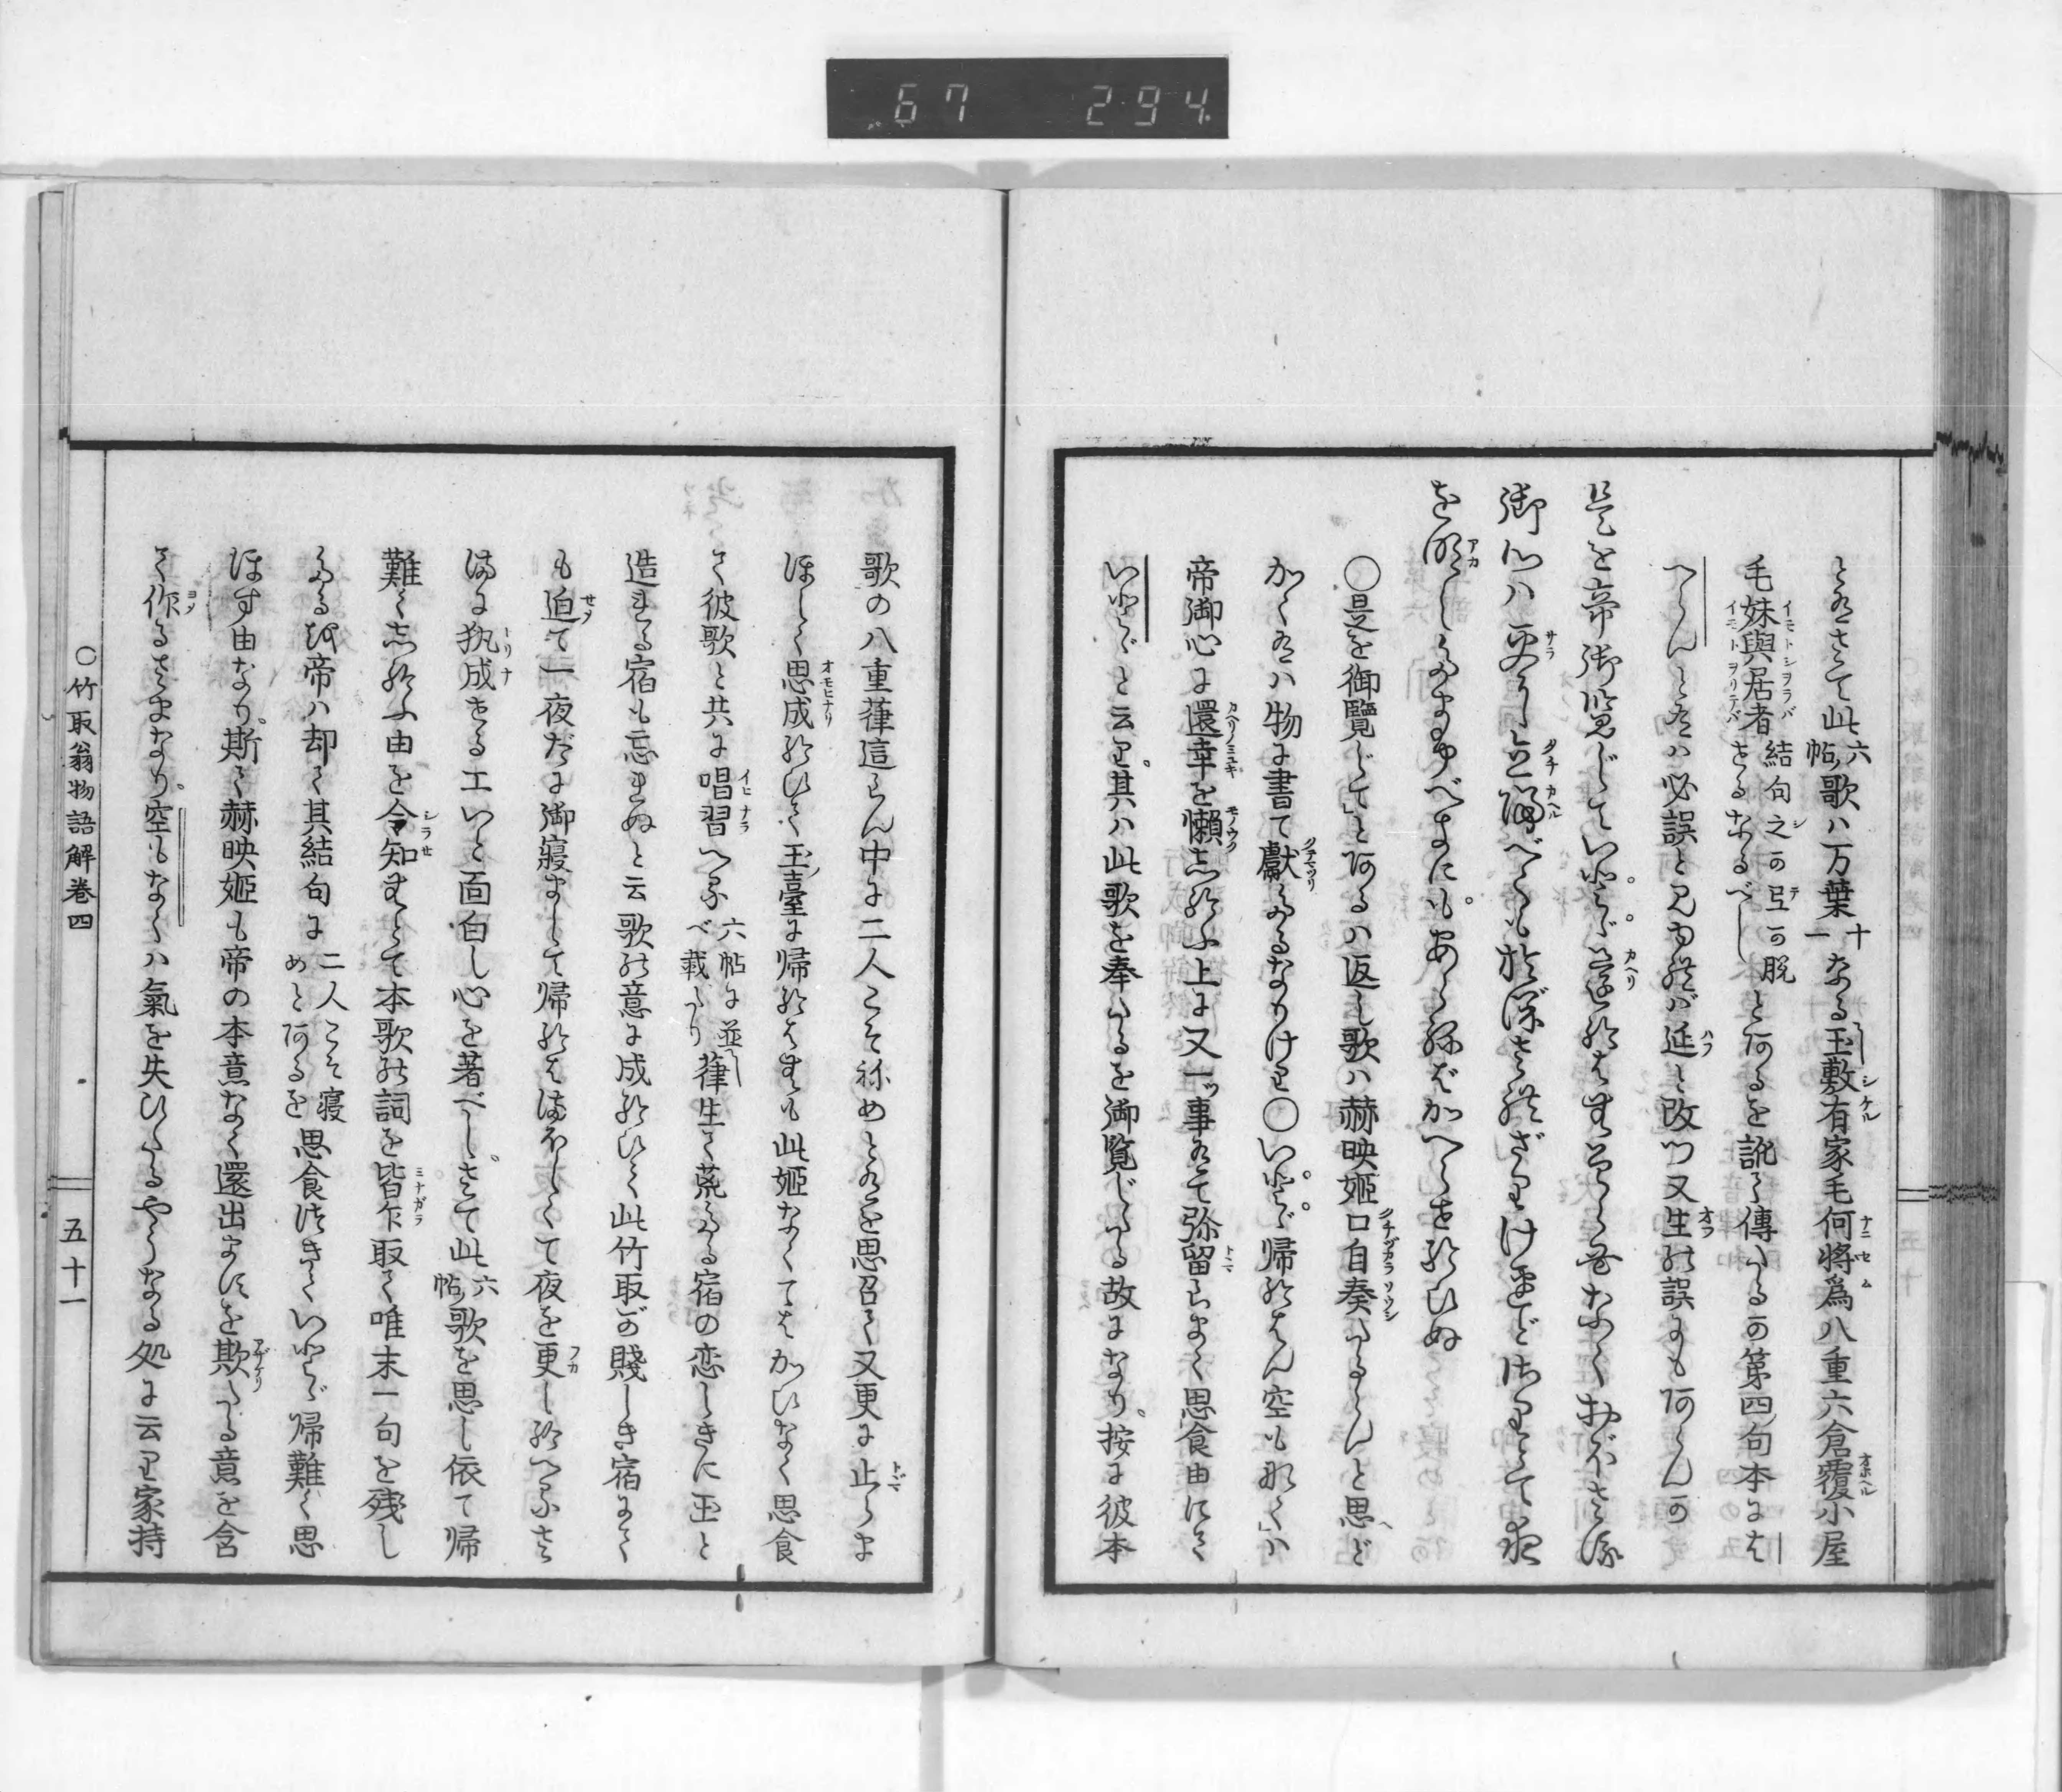 67 294
とあるさて此六帖歌ハ万葉十一なる玉敷有家毛何将為八重六倉覆小屋
毛妹與居者結句之可旦可脱さるなるべしと阿るを訛て傳へる可第四句本には
へらんとあるハ必誤と見ゆれバ延と改つ又生の誤にも阿らん可
是を帝御覧じていとゞ還給はむ空もなくおぼさる
御心ハ更に立帰べくも於ぼさ連ざりけ連どさりとて夜
を明し給ふべきにもあらねばかへらせ給ひぬ
○是を御覧じてと阿るハ返し歌ハ赫映姫口自奏したるらんと思へど
かくあるハ物に書て獻れるなりけり○いとゞ帰給はん空も那くハ
帝御心に還幸を懶しく志給ふ上に又一ッ事ありて弥留らまく思食由にて
いとゞと云り其ハ此歌を奉れるを御覧じたる故になり按に彼本
歌の八重葎這らん中に二人こそねめとあるを思召て又更に止らま
ほしく思成給ひて玉臺に帰給はむも此姫なくてはかひなく思食
て彼歌と共に唱習へる六帖に並べ載たり葎生て荒たる宿の恋しきに玉と
造れる宿も忘れぬと云歌の意に成給ひて此竹取が賤しき宿にて
も迫て一夜だに御寢まして帰給はまほしくて夜を更し給へるさ
まに執成せる工いと面白し心を著べしさて此六帖歌を思し依て帰
難く志給ふ由を令知むとて本歌の詞を皆乍取て唯末一句を残し
たる越帝ハ却て其結句に二人こそ寝めと阿るを思食けきていとゞ帰難く思
ほす由なり斯て赫映姫も帝の本意なく還出まにを欺たる意を含
て作るさまなり空もなくハ氣を失ひたるやうなる処に云り家持
○竹取翁物語解巻四
五十一